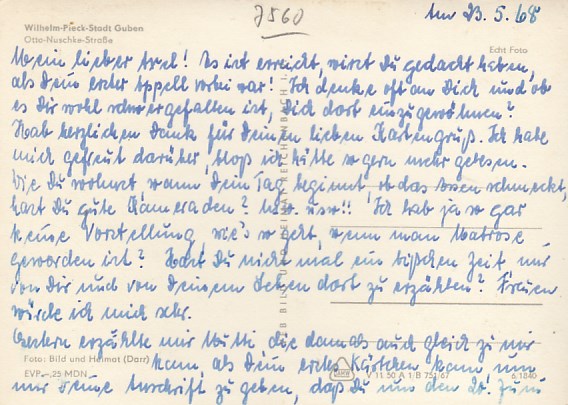 7560
Am 23.5.68
Wilhelm-Pieck-Stadt Guben
Otto-Nuschke-Straße
Echt Foto
Mein lieber Axel! Es ist erreicht, wirst Du gedacht haben,
als Dein erster Appell vorbei war! Ich denke oft an Dich und ob
es Dir wohl schwer gefallen ist, Dich dort einzugewöhnen?
Hab herzlichen Dank für Deinen lieben Kartengruß. Ich habe
mich gefreut darüber, bloß ich hätte so gern mehr gelesen.
Wie Du wohnst, wann Dein Tag beginnt, ob das Essen schmeckt,
hast Du gute Kameraden? usw. usw!! Ich hab ja so gar
keine Vorstellung, wie's so geht, wenn man Matrose
geworden ist? Hast Du nicht mal ein bißchen Zeit, mir
von Dir und von Deinem Leben dort zu erzählen? Freuen
würde ich mich sehr.
Gestern erzählte mir Mutti die damals auch gleich zu mir
Foto: Bild und Heimat (Darr)
kam, als Dein erstes Kärtchen kam um
EVP -,25 MDN
V 11 50 A 1/B 751/67
5/1840
mir Deine Anschrift zu geben, daß Du nun den 20. Juni
VEB BILD UND HEIMAT REICHENBACH I. V.